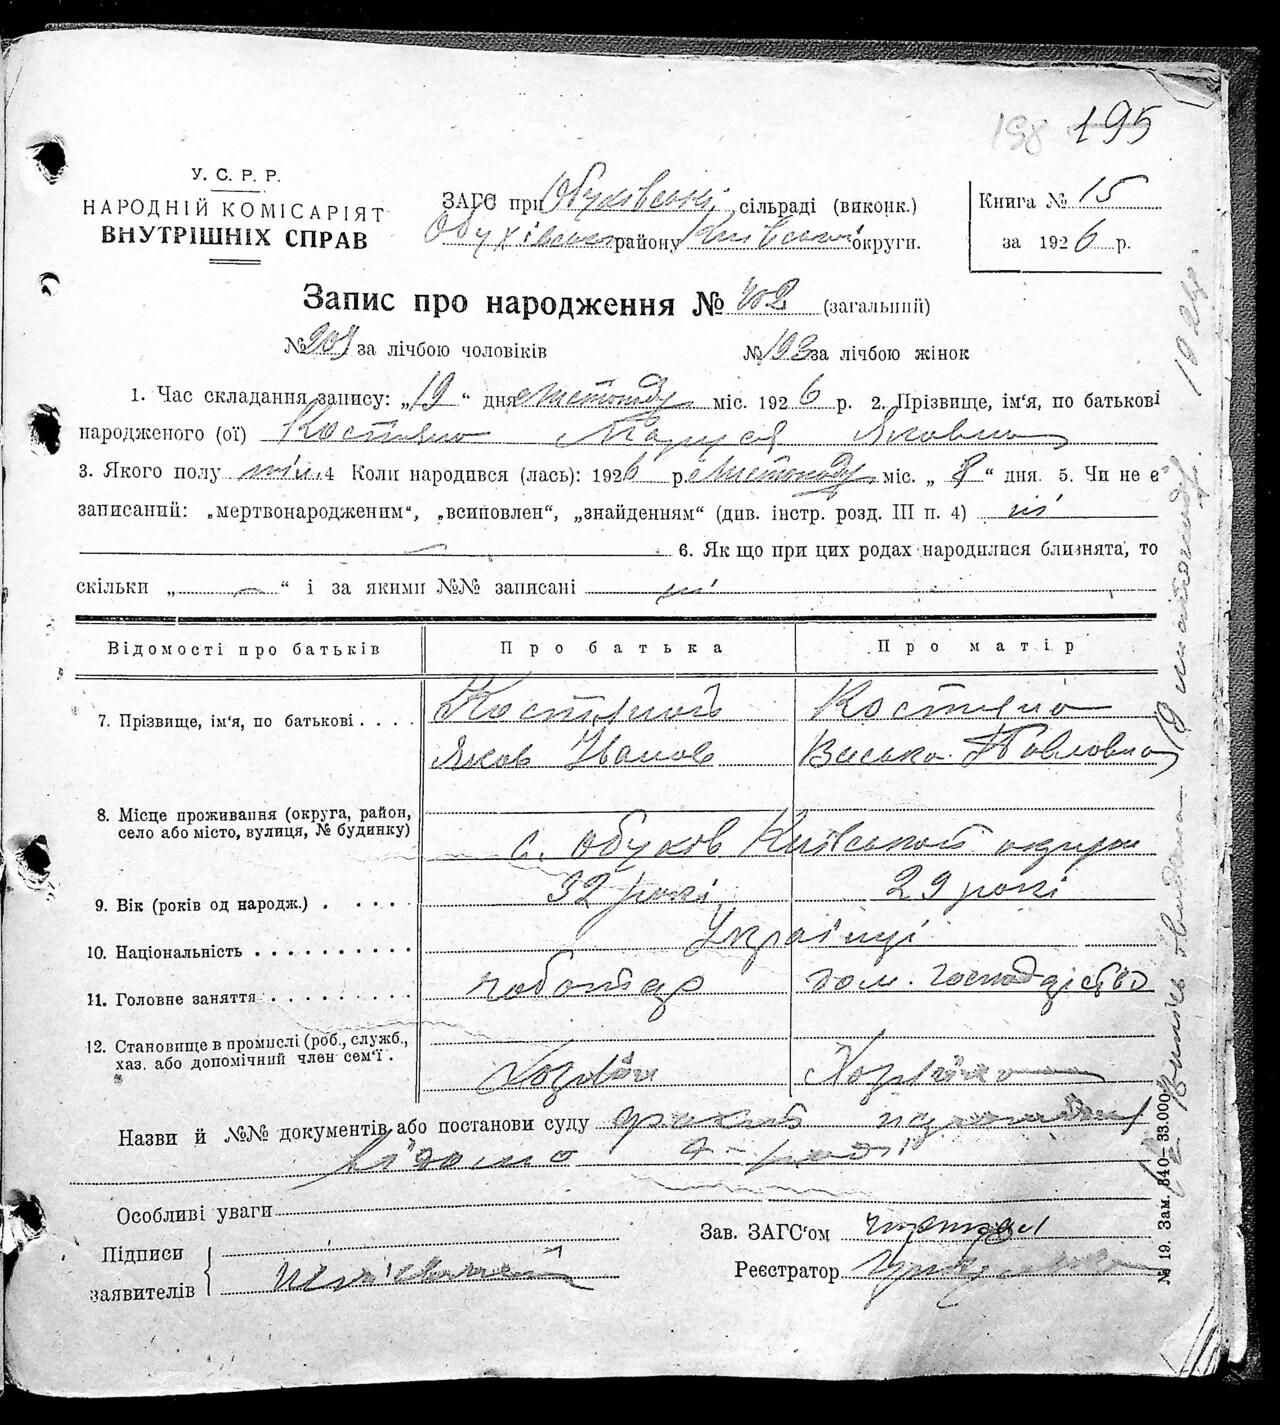 198 195
У. С. Р. Р.
НАРОДНІЙ КОМІСАРІЯТ
ВНУТРІШНІХ СПРАВ
ЗАГС при Обухівські сільраді (виконк.)
Обухівськ району Київської округи.
Книга № 15
за 1926 р.
Запис про народження № 402 (загальний)
№ 209 за лічбою чоловіків № 193 за лічбою жінок
1. Час складання запису: „19“ дня листопаду міс. 1926 р. 2. Прізвище, ім'я, по батькові
народженого (ої) Костяна Маруся Яковна
3. Якого полу жін. 4 Коли народився (лась): 1926 р. листопаду міс. „8“ дня. 5. Чи не є
записаний: „мертвонародженим“, „всиповлен“, „знайденням“ (див. інстр. розд. III п. 4) ні
6. Як що при цих родах народилися близнята, то
скільки „ — “ і за якими №№ записані ні
Відомості про батьків Про батька Про матір
7. Прізвище, ім'я, по батькові . . . . Костяной Костяна
Яков Іванов Васька Павловна
8. Місце проживання (округа, район,
село або місто, вулиця, № будинку) с. Обухів Київської округи
9. Вік (років од народж.) . . . . . 32 рокі 29 рокі
10. Національність . . . . . . . . . . Українці
11. Головне заняття . . . . . . . . . чоботар дом. господарство
12. Становище в промислі (роб., служб.,
хаз. або допомічний член сем'ї . Хозяїн Хозяйка
Назви й №№ документів або постанови суду факт народження
відомо
Особливі уваги
Підписи
заявителів
Зав. ЗАГС'ом
Реєстратор
№ 19. Зам. 840–33.000
19 листопаду 1924